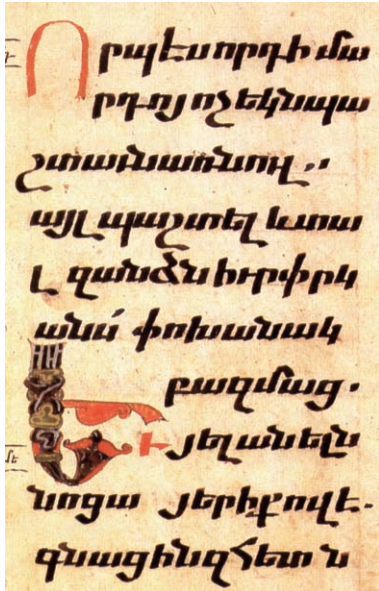 Որպէս որդի մա
րդոյ ոչ եկն պա
շտաւն առնուլ..
այլ պաշտել և տա
լ զանձն իւր փրկ
անս փոխանակ
բազմաց.
Եւ յելանելն
նոցա յերիքովէ.
գնացին զհետ ն